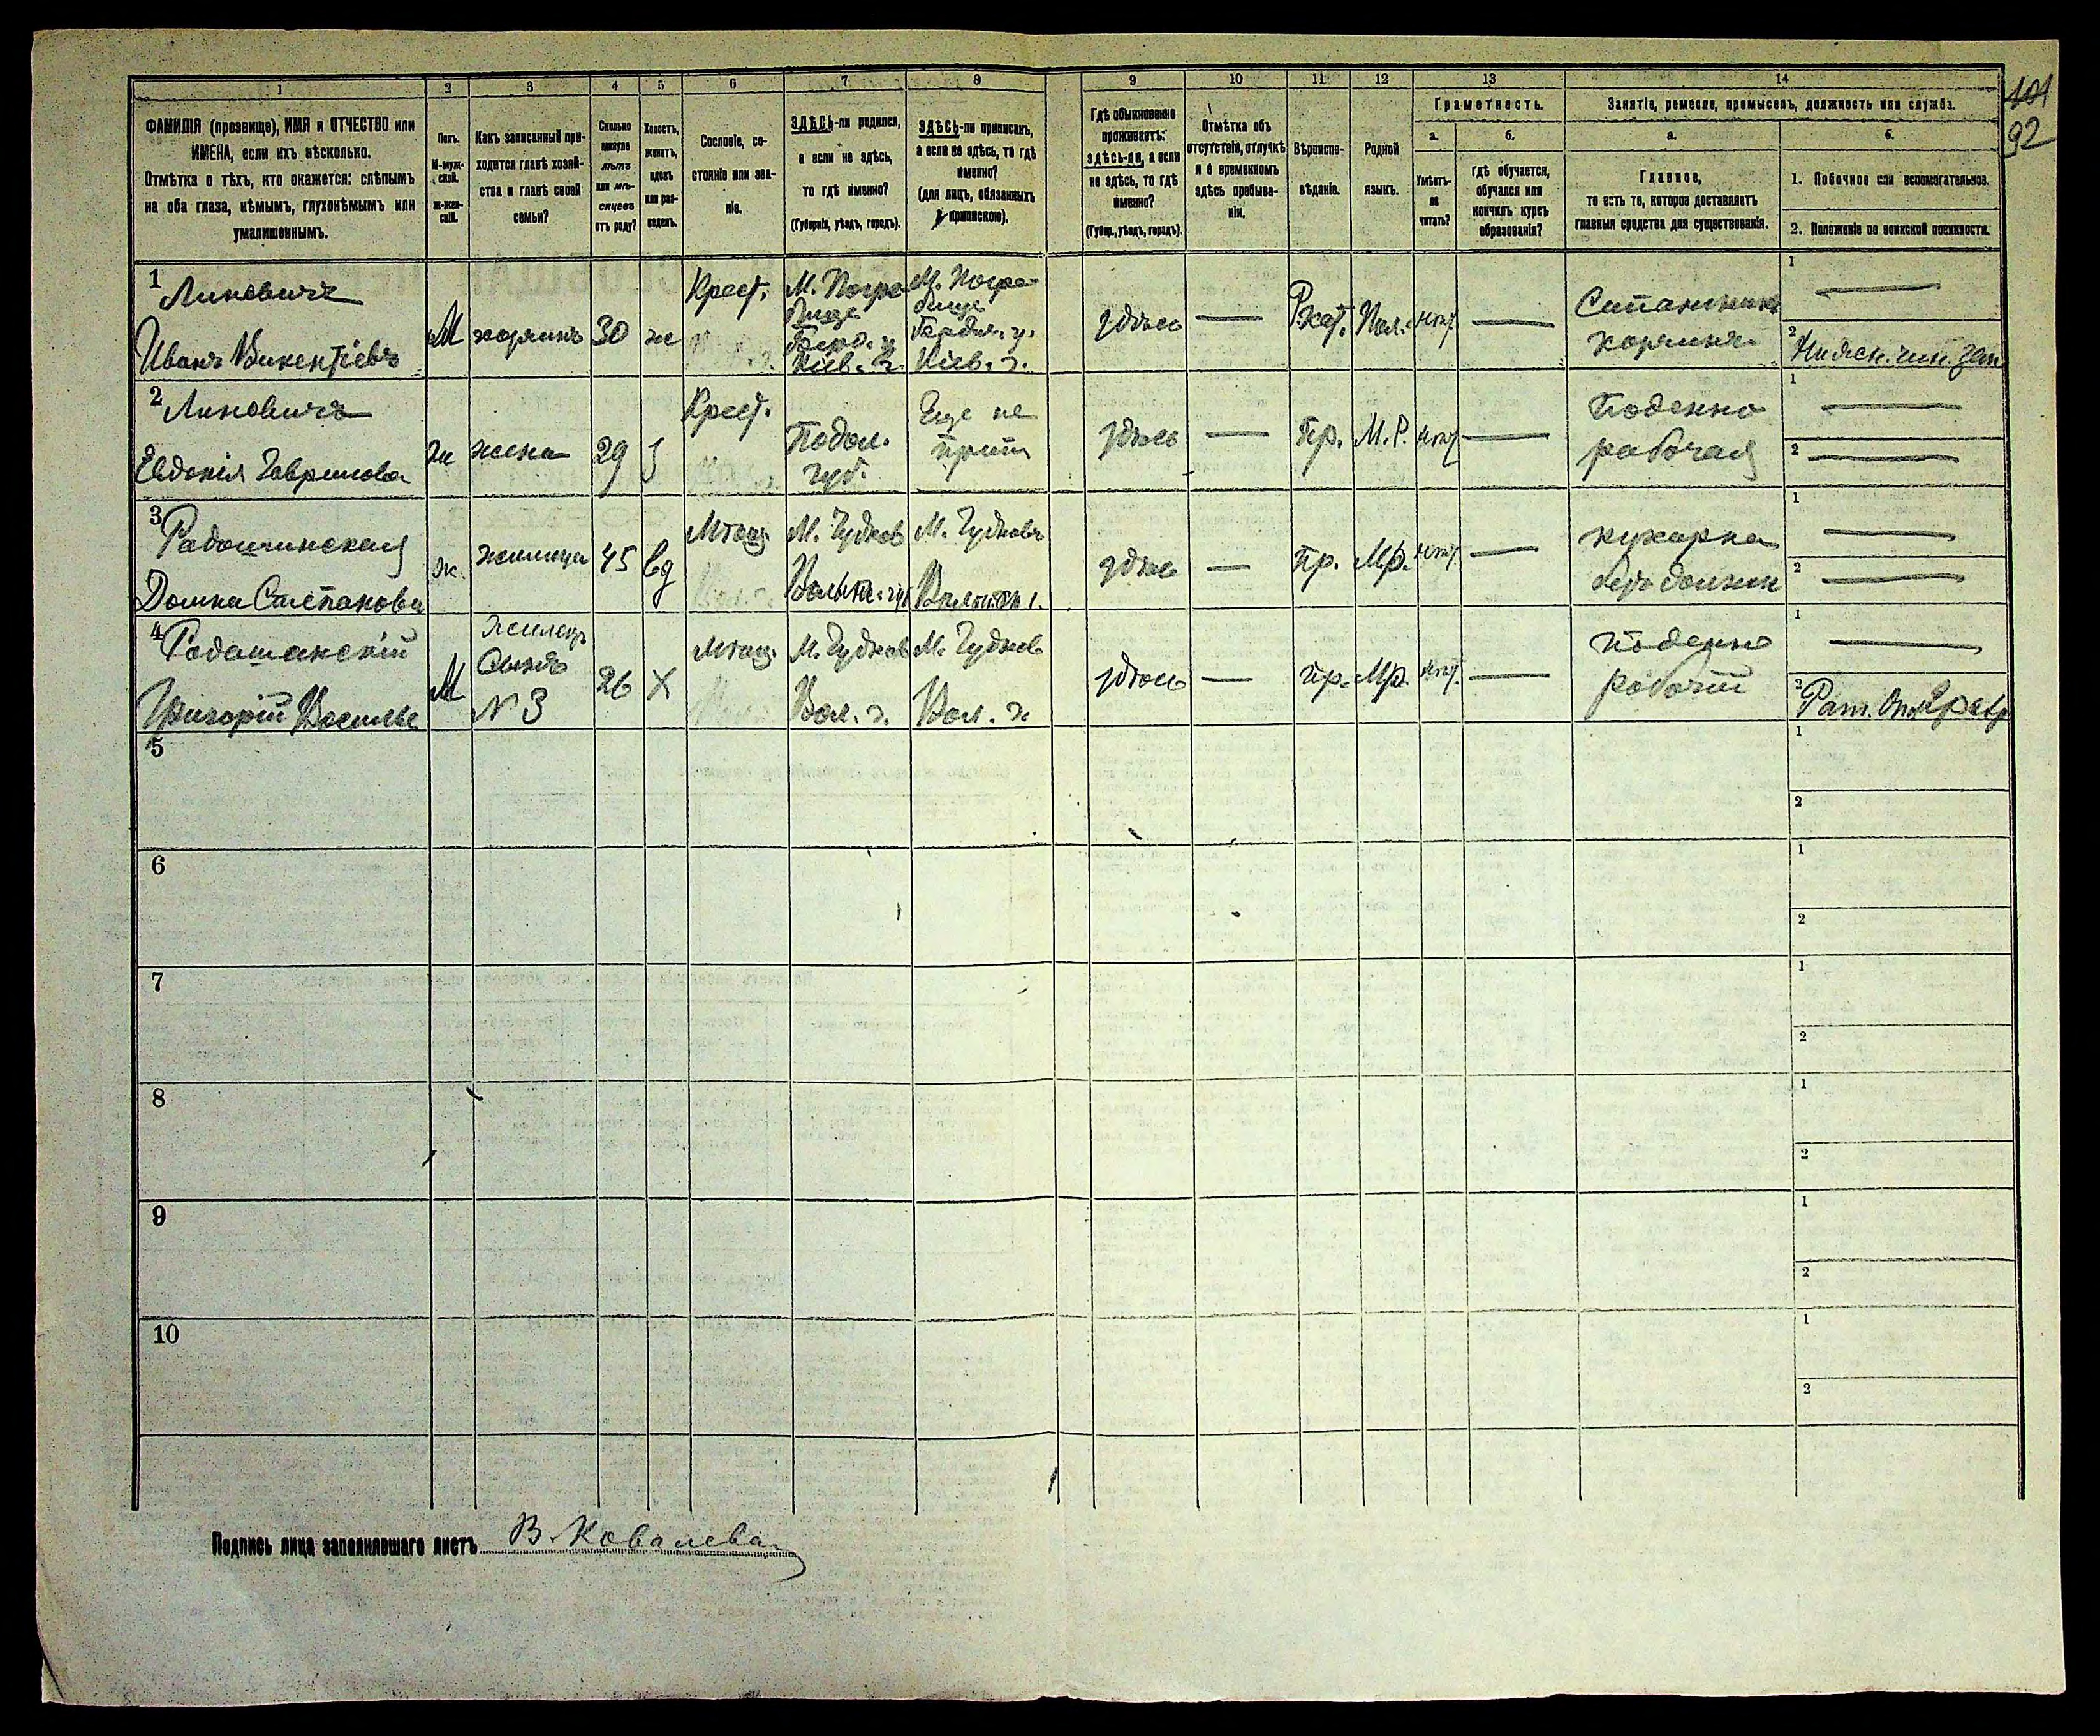 1 2 3 4 5 6 7 8 9 10 11 12 13 14
ФАМИЛІЯ (прозвище), ИМЯ и ОТЧЕСТВО или
ИМЕНА, если ихъ нѣсколько.
Отмѣтка о тѣхъ, кто окажется: слѣпымъ
на оба глаза, нѣмымъ, глухонѣмымъ или
умалишеннымъ.
Полъ.
М-муж-
ской.
ж-жен-
скій.
Какъ записанный при-
ходится главѣ хозяй-
ства и главѣ своей
семьи?
Сколько
минуло
лѣтъ
или мѣ-
сяцевъ
отъ роду?
Холостъ,
женатъ,
вдовъ
или раз-
веденъ.
Сословіе, со-
стояніе или зва-
ніе.
ЗДѢСЬ-ли родился,
а если не здѣсь,
то гдѣ именно?
(Губернія, уѣздъ, городъ).
ЗДѢСЬ-ли приписанъ,
а если не здѣсь, то гдѣ
именно?
(для лицъ, обязанныхъ
припискою).
Гдѣ обыкновенно
проживаетъ:
здѣсь-ли, а если
не здѣсь, то гдѣ
именно?
(Губер., уѣздъ, городъ).
Отмѣтка объ
отсутствіи, отлучкѣ
и о временномъ
здѣсь пребыва-
ніи.
Вѣроиспо-
вѣданіе.
Родной
языкъ.
Грамотность.
а.
Умѣетъ-
ли
читать?
б.
гдѣ обучается,
обучался или
кончилъ курсъ
образованія?
Занятіе, ремесло, промыселъ, должность или служба.
а.
Главное,
то есть то, которое доставляетъ
главныя средства для существованія.
б.
1. Побочное или вспомогательное.
2. Положеніе по воинской повинности.
101
92
1
Линевичъ
Иванъ Викентіевъ
М
хозяинъ
30
ж
Крест.
М. Погре
бище
Берд. у.
Кіев. г.
М. Погре
бище
Бердич. у.
Кіев. г.
здѣсь
—
Р. кат.
Пол.
нѣт
—
хозяинъ
1
—
2
2
Линевичъ
Евдокія Гаврилова
ж
жена
29
З
Крест.
Подол.
губ.
Еще не
прип
здѣсь
—
Пр.
М. Р.
нѣт
—
Поденно
рабочая
1
—
2
—
3
Домна Степанова
ж.
жилица
45
вд
Мѣщ.
М. Чуднов
Волынс. губ
М. Чудновъ
здѣсь
—
Пр.
Мр.
нѣт
—
кухарка
безъ должн
1
—
2
—
4
Григорій Василье
М
Жилецъ
Сынъ
№ 3
26
Х
Мѣщ.
М. Чуднов
Вол. г.
М. Чуднов
Вол. г.
здѣсь
—
пр.
Мр.
нѣт.
—
Поденно
рабочій
1
—
2
5
1
2
6
1
2
7
1
2
8
1
2
9
1
2
10
1
2
Подпись лица заполнявшаго листъ В. Ковалева